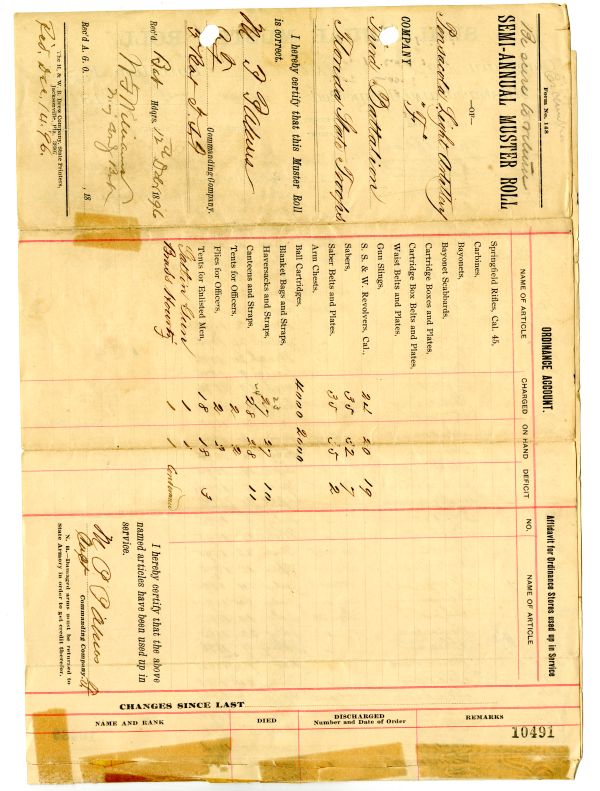 Be sure to return
Form No. 148
SEMI-ANNUAL MUSTER ROLL
—OF—
Pensacola Light Artillery
COMPANY "F"
Third Battalion
Florida State Troops
I hereby certify that this Muster Roll
is correct.
Commanding Company.
Rec'd Hdqrs. 12th Dec 1896
Rec'd A. G. O. , 18
The H. & W. B. Drew Company, State Printers,
Jacksonville, Fla.
Rec'd. Dec. 14. 96.
ORDINANCE ACCOUNT.
NAME OF ARTICLE CHARGED ON HAND DEFICIT
Springfield Rifles, Cal. 45,
Carbines,
Bayonets,
Bayonet Scabbards,
Cartridge Boxes and Plates,
Cartridge Box Belts and Plates,
Waist Belts and Plates,
Gun Slings,
S. & W. Revolvers, Cal., 20 19
Sabers, 35
Saber Belts and Plates, 35 2
Arm Chests,
Ball Cartridges, 4000 2000
Blanket Bags and Straps,
Haversacks and Straps, 27 27 10
Canteens and Straps, 28 28 11
Tents for Officers, 2 2
Flies for Officers, 2
Tents for Enlisted Men, 18 18 3
Gatlin Gun 1 1
1 1
Affidavit for Ordinance Stores used up in Service
NO. NAME OF ARTICLE
I hereby certify that the above
named articles have been used up in
service.
Capt Commanding Company.
N. B.—Damaged arms must be returned to
State Armory in order to get credit therefor.
CHANGES SINCE LAST
NAME AND RANK DIED DISCHARGED REMARKS
Number and Date of Order
10491